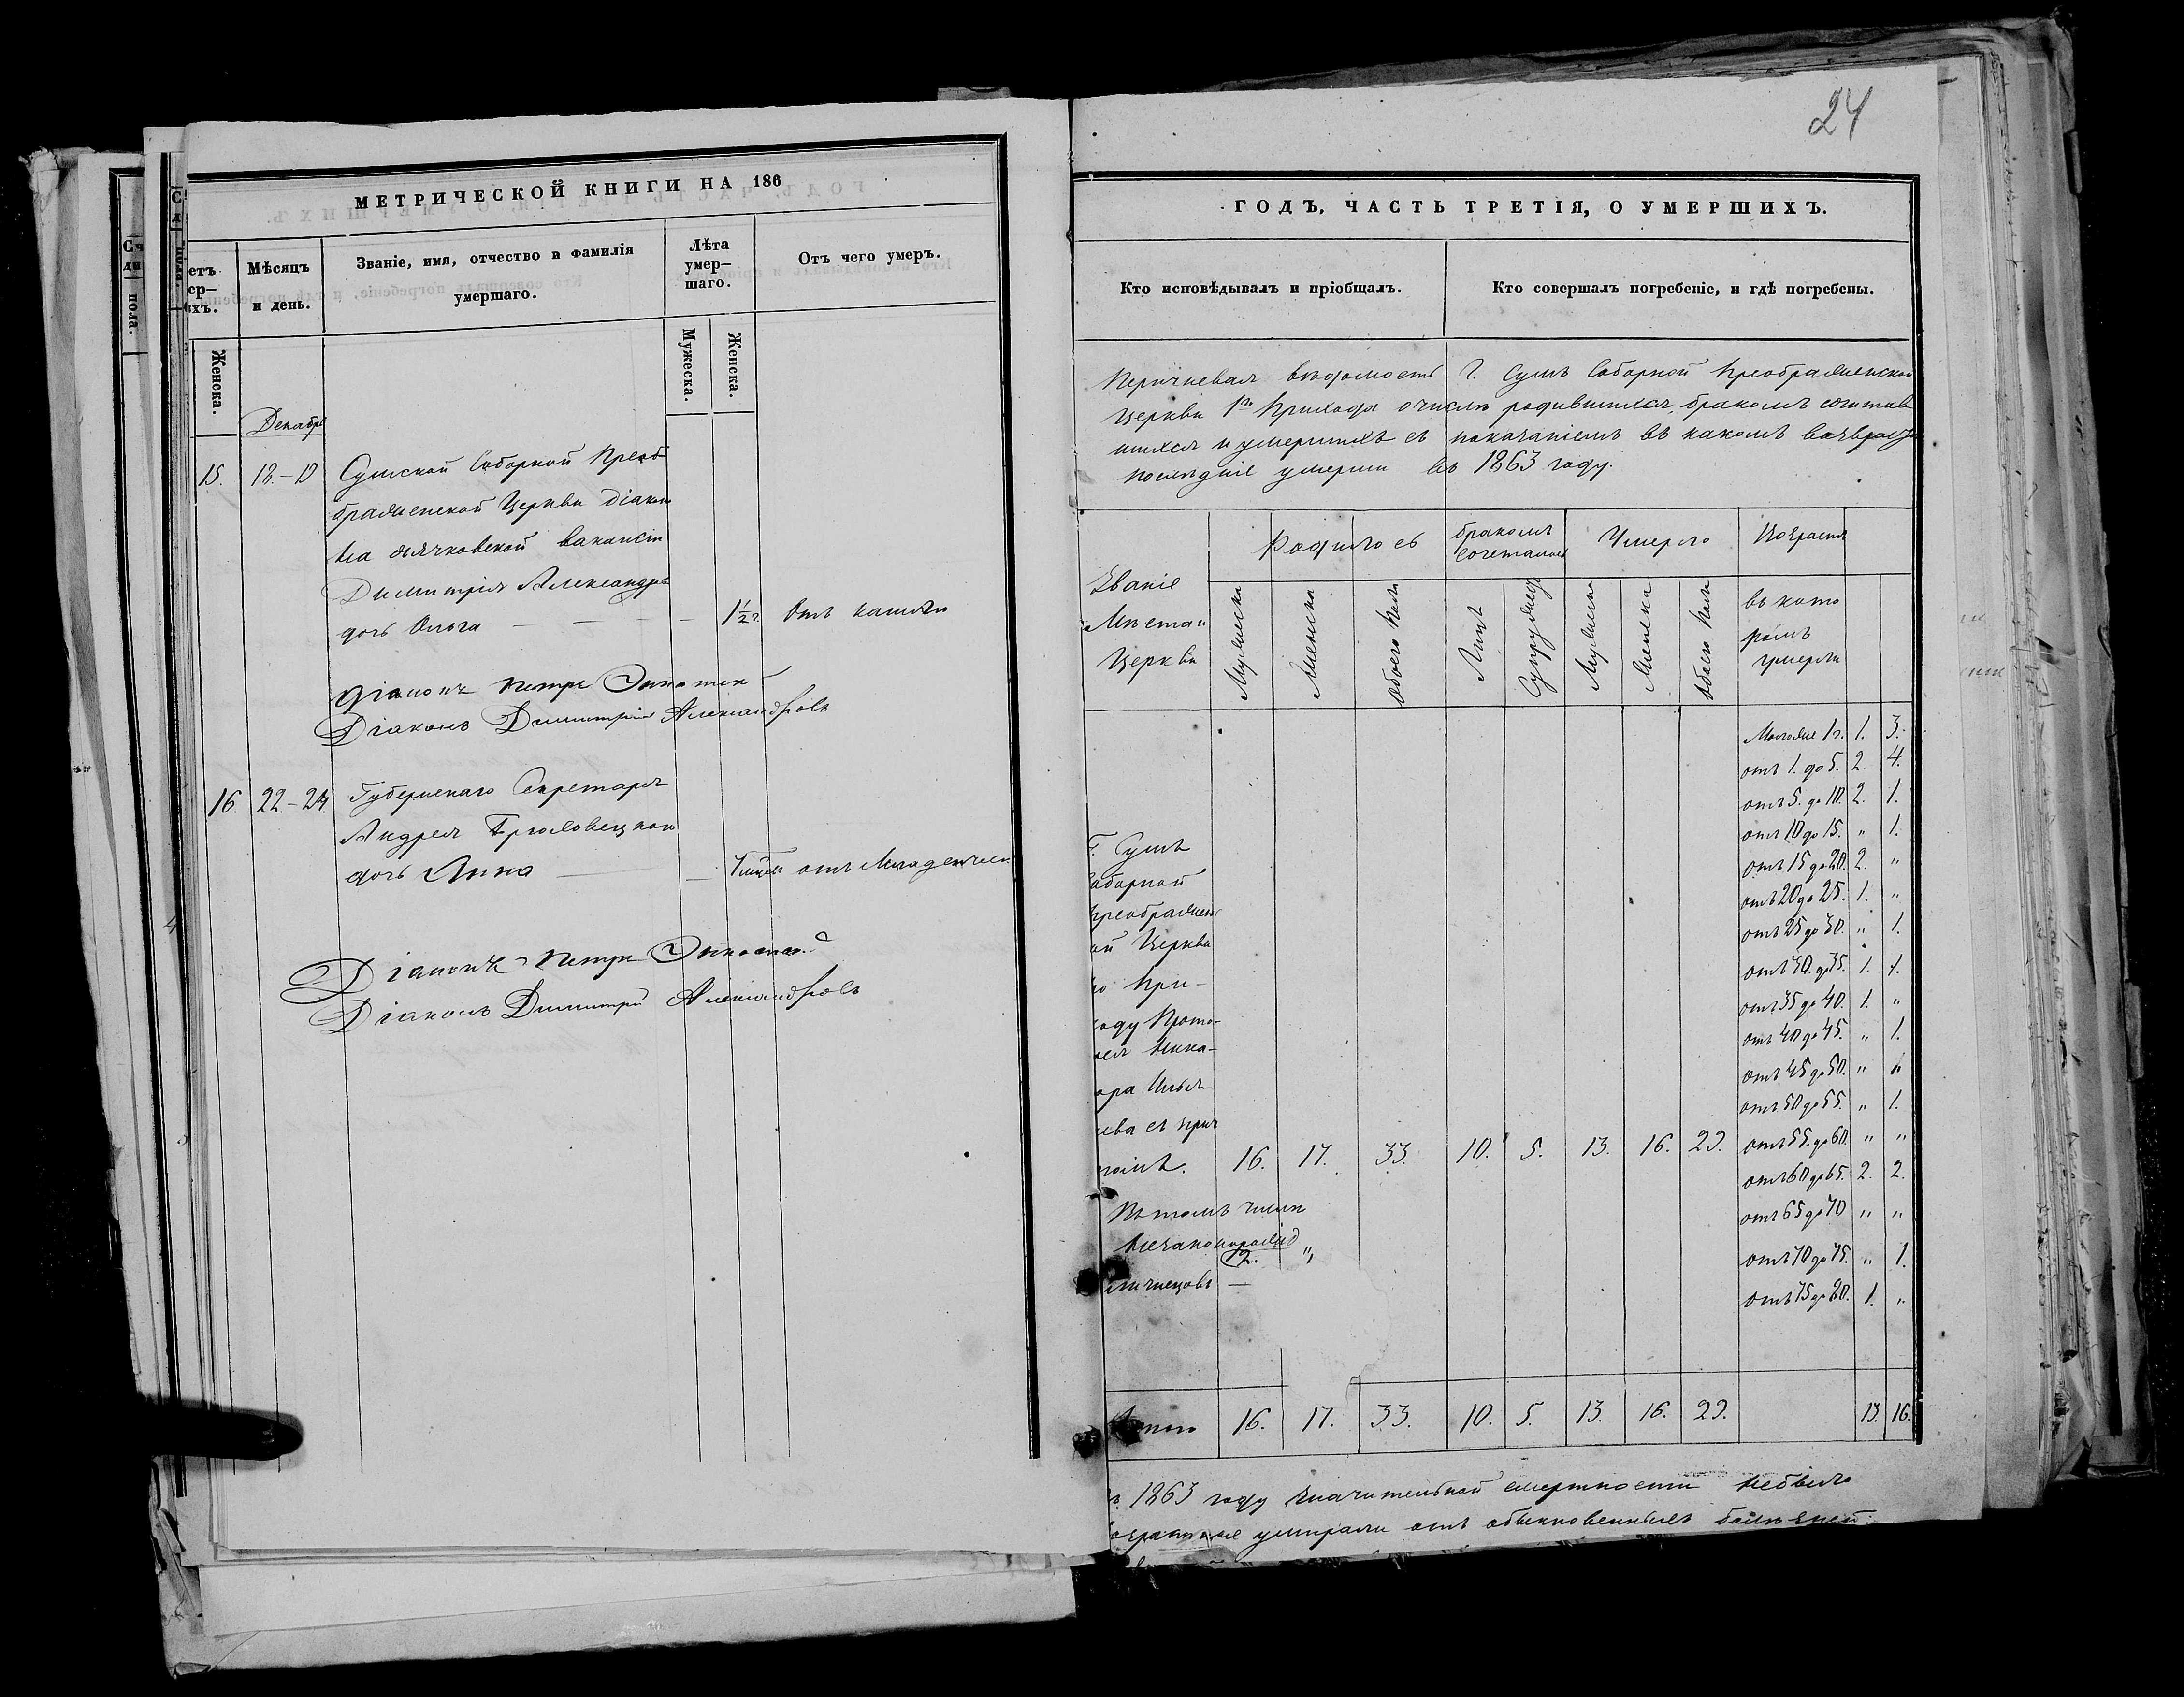 24
МЕТРИЧЕСКОЙ КНИГИ НА 186
етъ
ер–
ихъ.
Мѣсяцъ
и день.
Званіе, имя, отчество и фамилія
умершаго.
Лѣта
умер–
шаго.
Отъ чего умеръ.
Женска.
Мужеска.
Женска.
Декабрь
15. 18.–19 Сумской Соборной Преоб-
браженской Церкви діакона
на дьячковской вакансіи
Димитрія Александрова
дочь Ольга — — — — 1½ г. Отъ кашлю
Діаконъ Петръ
Діаконъ Димитрій Александровъ
16. 22.–24. Губернскаго Секретаря
Андрея
дочь Анна — — отъ Младенческ
Діаконъ Петръ
Діаконъ Димитрій Александровъ
ГОДЪ, ЧАСТЬ ТРЕТІЯ, О УМЕРШИХЪ.
Кто исповѣдывалъ и пріобщалъ.
Кто совершалъ погребеніе, и гдѣ погребены.
Перечневая вѣдомость Г. Сумъ Соборной Преображенской
Церкви 1го Прихода о числѣ родившихся, бракомъ сочетав
шихся и умершихъ съ показаніемъ въ какомъ возврасте
послѣдніе умерли въ 1863 году.
Званіе
Мѣста и
Церкви
Родилось
Бракомъ
сочеталось
Умерло
Возрастъ
въ кото
ромъ
умерли
Мужеска
Женска
Обоего пола
Лицъ
Супружествъ
Мужеска
Женска
Обоего пола
Моложе 1 г. 1. 3.
отъ 1. до 5. 2. 4.
отъ 5. до 10. 2. 1.
отъ 10 до 15. " 1.
отъ 15 до 20. 2. "
отъ 20 до 25. 1. "
отъ 25 до 30. " 1.
отъ 30. до 35. 1. 1.
отъ 35 до 40. 1. "
отъ 40 до 45. " 1.
отъ 45 до 50. "
отъ 50 до 55. " 1.
отъ 55. до 60. " "
отъ 60 до 65. 2. 2.
отъ 65 до 70 " "
отъ 70 до 75. " 1.
отъ 75 до 80. 1. "
Г. Сумъ
оборной
Преображенс
ой Церкви
го При-
ходу Прото-
рея Ника-
ора Илья-
шева съ прич
томъ. 16. 17. 33. 10. 5. 13. 16. 29.
Въ томъ числѣ
Незаконорожд
12. "
Единчецовъ —
Итого 16. 17. 33. 10. 5. 13. 16. 29. 13. 16.
1863 году значительной смертности небыло
умирали отъ обыкновенныхъ болѣзней.